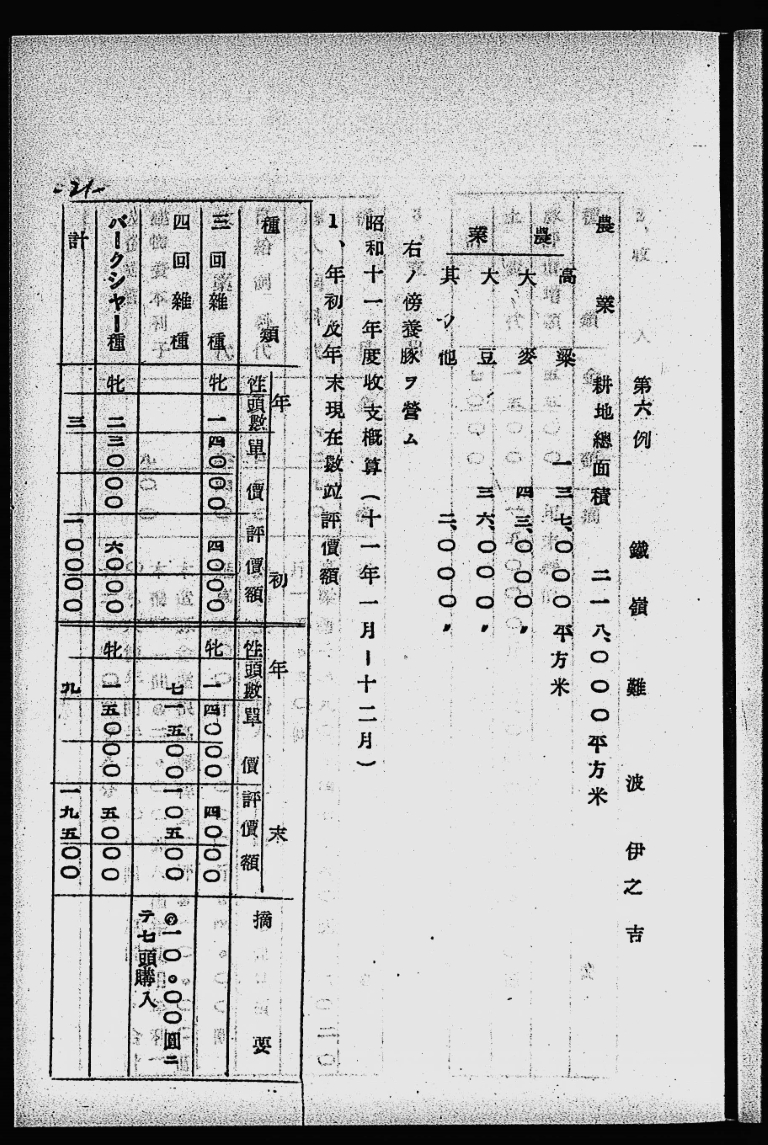 第六例 鐵嶺 難波伊之吉
農業 耕地總面積 二一八、〇〇〇平方米
農業
高粱 一三七、〇〇〇平方米
大麥 四三、〇〇〇〃
大豆 三六、〇〇〇〃
其ノ他 二、〇〇〇〃
右ノ傍養豚ヲ營ム
昭和十一年度收支概算(十一年一月-十二月)
1、年初及年末現在數竝評價額
種類 年初 性 頭數 單價 評價額 年末 性 頭數 單價 評價額 摘要
三回雜種 牝 一 四〇〇〇 四〇〇〇 牝 一 四〇〇〇 四〇〇〇
四回雜種 七 一五〇〇 一〇五〇〇 @一〇。〇〇圓ニテ七頭購入
バークシャー種 牝 二 三〇〇〇 六〇〇〇 牝 一 五〇〇〇 五〇〇〇
計 三 一〇〇〇〇 九 一九五〇〇
-21-